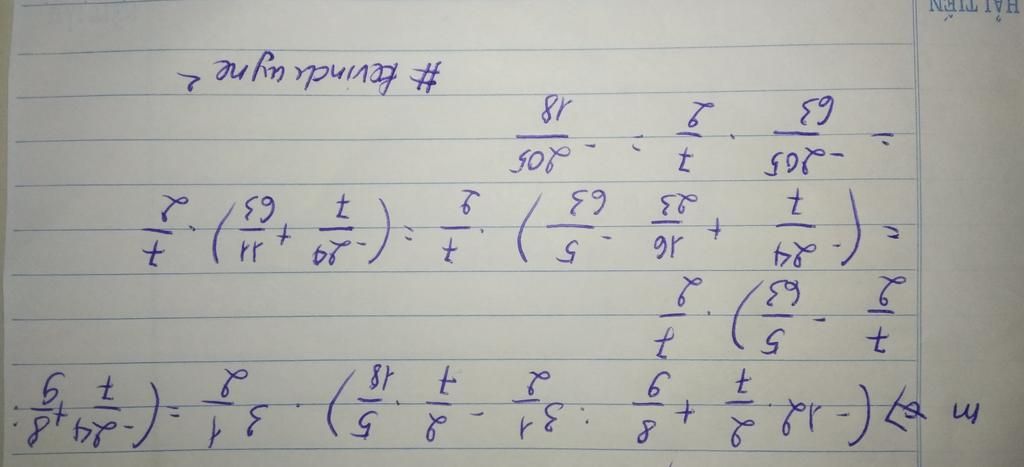 m c) (-12 . 2/7 + 8/9 : 3 1/2 - 2/7 . 5/18) . 3 1/2 = (-24/7 + 8/9 :
7/2 - 5/63) . 7/2
= (-24/7 + 16/23 - 5/63) . 7/2 = (-24/7 + 11/63) . 7/2
= -205/63 . 7/2 = -205/18
# kevindwayne
HẢI TIẾN